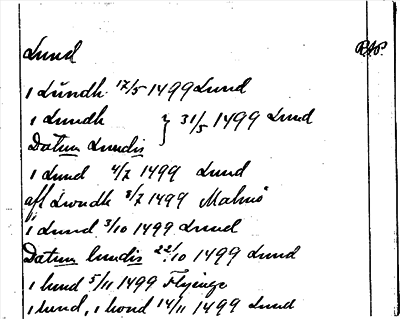 Lund
i Lúndh 17/5 1499 Lund
i Lundh } 31/5 1499 Lund
Datum Lundis
i Lund 4/7 1499 Lund
aff Lwndh 3/7 1499 Malmö
i Lund 3/10 1499 Lund
Datum lundis 22/10 1499 Lund
i lund 5/11 1499 Flyinge
i lund, i lond 14/11 1499 Lund